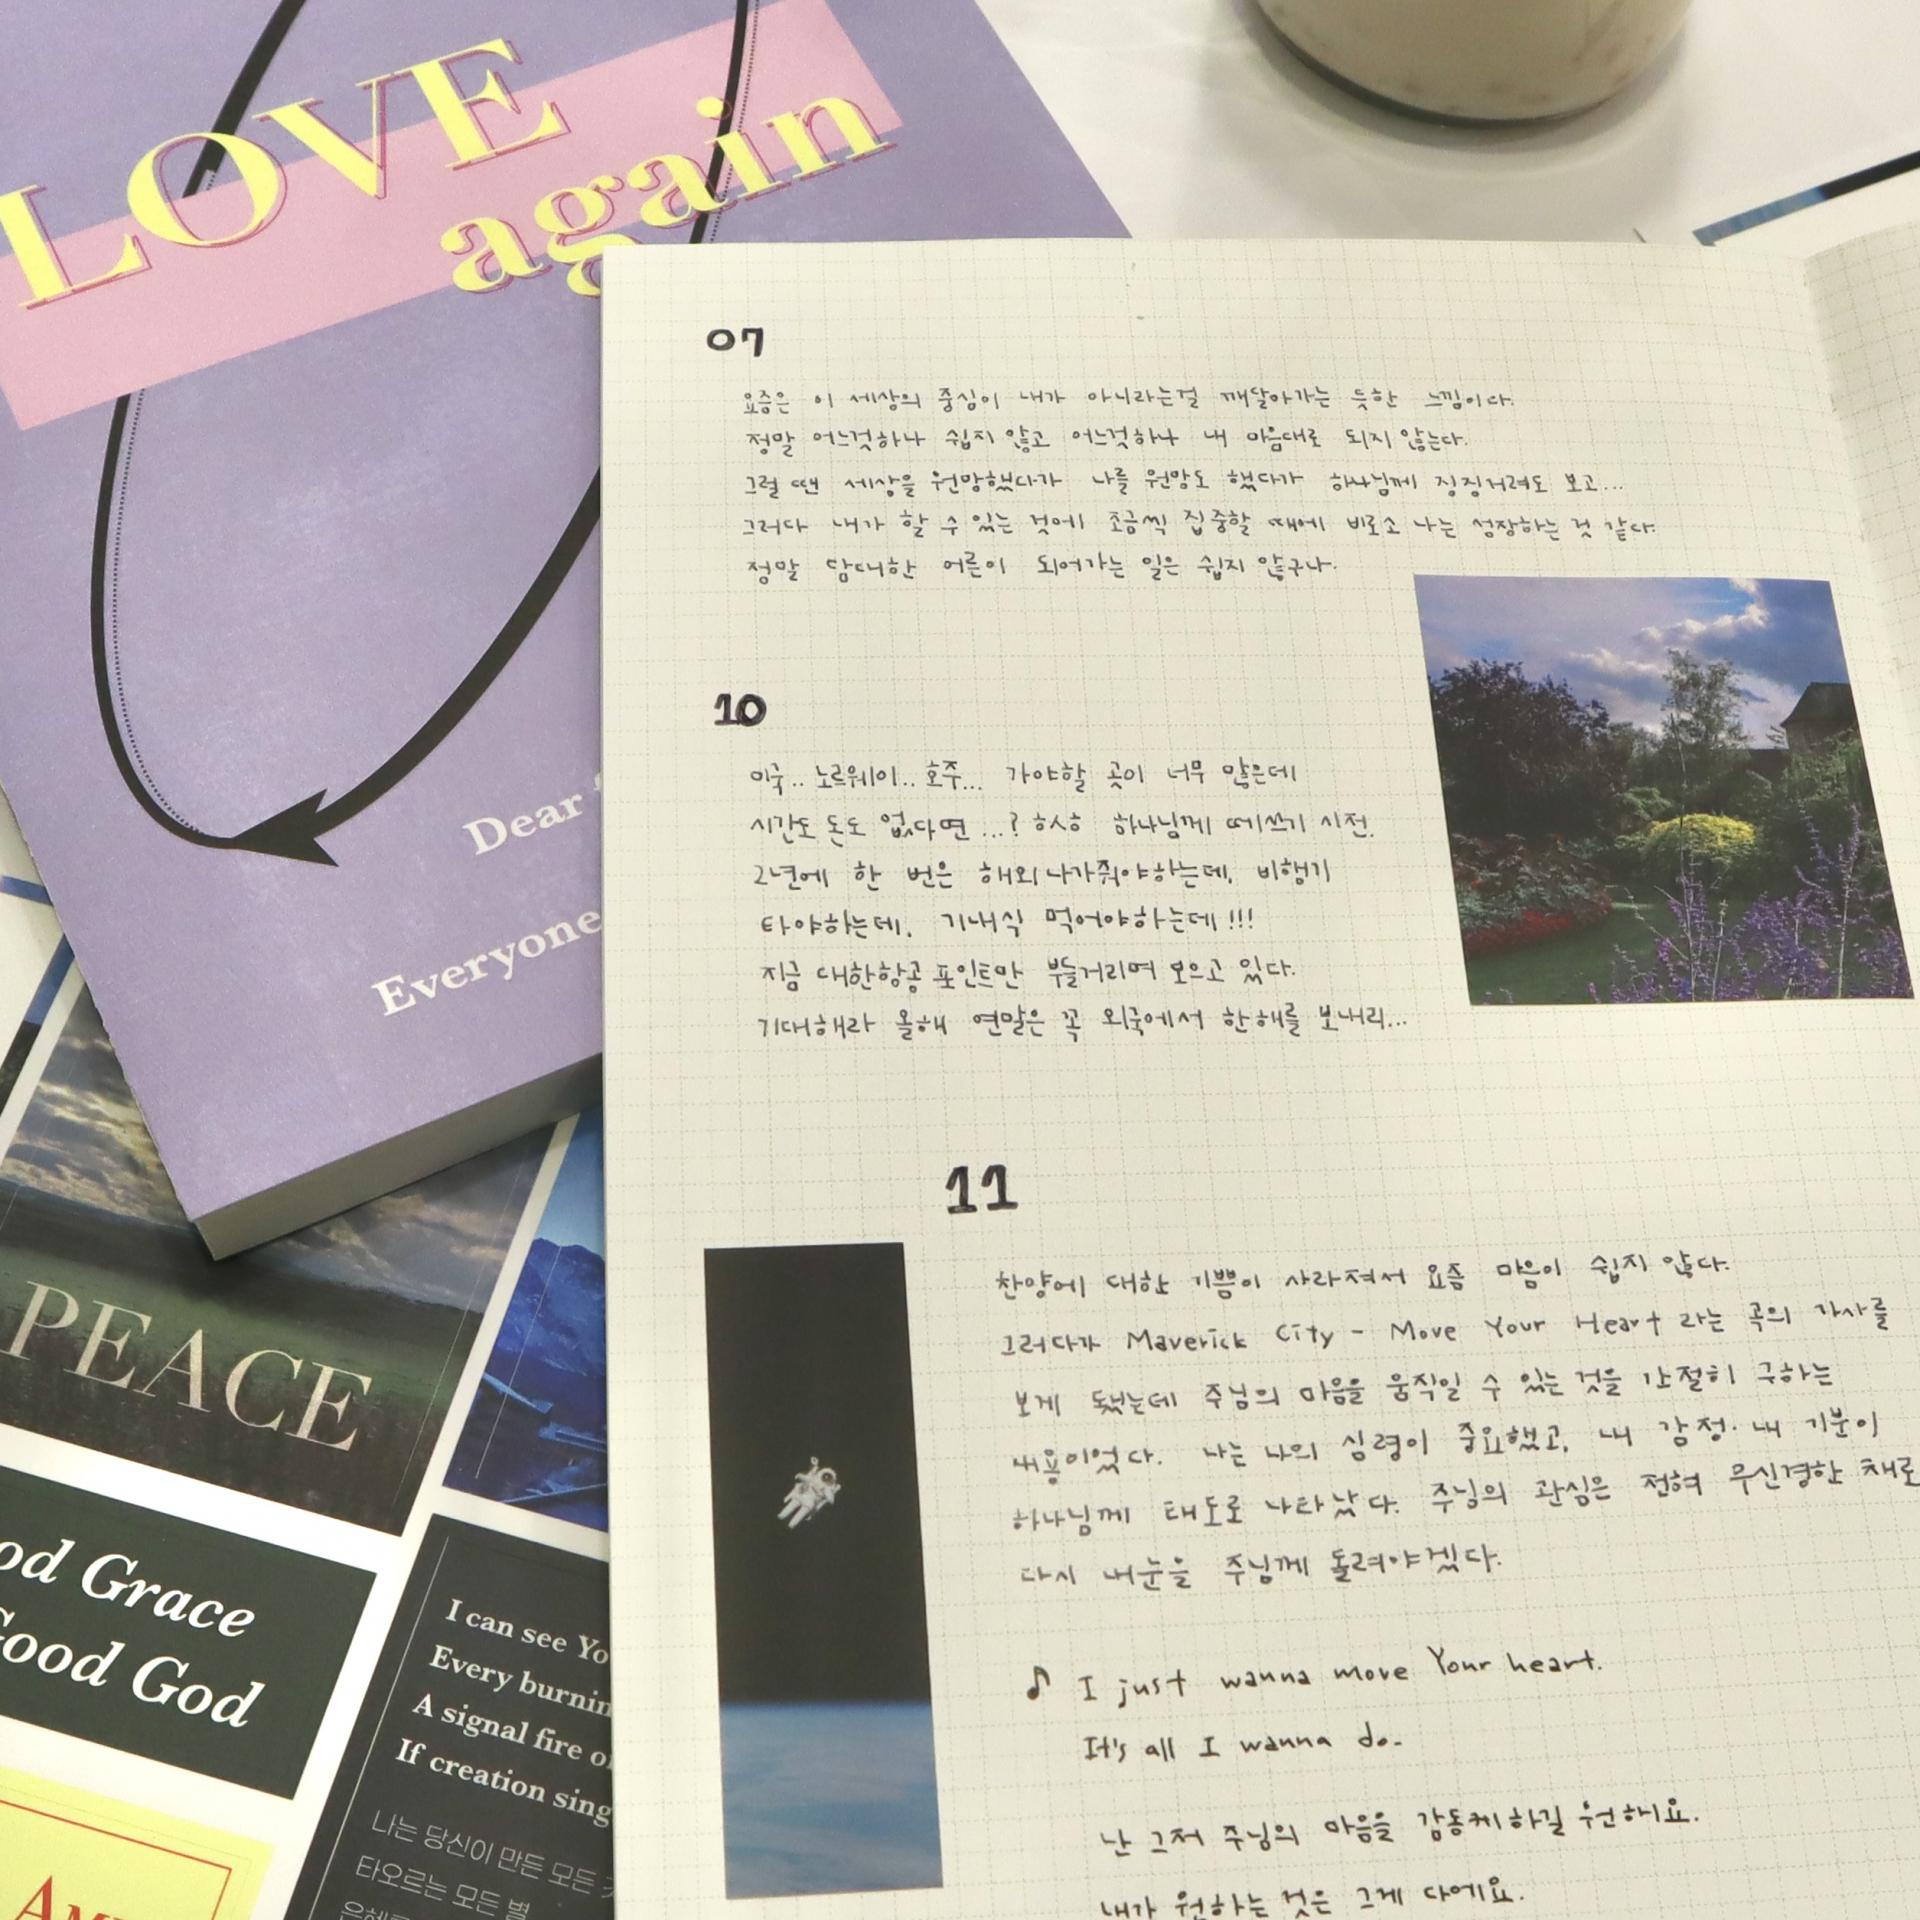 LOVE
again
Dear
Everyone
PEACE
Grace
Good God
I can see Yo
Every burnin
A signal fire
If creation sing
나는 당신이 만든 모든
타오르는 모든 별
07
요즘은 이 세상의 중심이 내가 아니라는걸 깨달아가는 듯한 느낌이다.
정말 어느것하나 쉽지 않고 어느것하나 내 마음대로 되지 않는다.
그럴 땐 세상을 원망했다가 나를 원망도 했다가 하나님께 징징거려도 보고...
그러다 내가 할 수 있는 것에 조금씩 집중할 때에 비로소 나는 성장하는 것 같다.
정말 담대한 어른이 되어가는 일은 쉽지 않구나.
10
미국.. 노르웨이.. 호주... 가야할 곳이 너무 많은데
시간도 돈도 없다면...? 하나님께 떼쓰기 시전.
2년에 한 번은 해외나가줘야하는데, 비행기
타야하는데, 기내식 먹어야하는데!!!
지금 대한항공 포인트만 부들거리며 모으고 있다.
기대해라 올해 연말은 꼭 외국에서 한해를 보내리...
11
찬양에 대한 기쁨이 사라져서 요즘 마음이 쉽지 않다.
그러다가 Maverick City - Move Your Heart 라는 곡의 가사를
보게 됐는데 주님의 마음을 움직일 수 있는 것을 간절히 구하는
내용이었다. 나는 나의 심령이 중요했고, 내 감정·내 기분이
하나님께 태도로 나타났다. 주님의 관심은 전혀 무신경한 채로
다시 내눈을 주님께 돌려야겠다.
♪ I just wanna move Your heart.
It's all I wanna do.
난 그저 주님의 마음을 감동케하길 원해요.
내가 원하는 것은 그게 다에요.